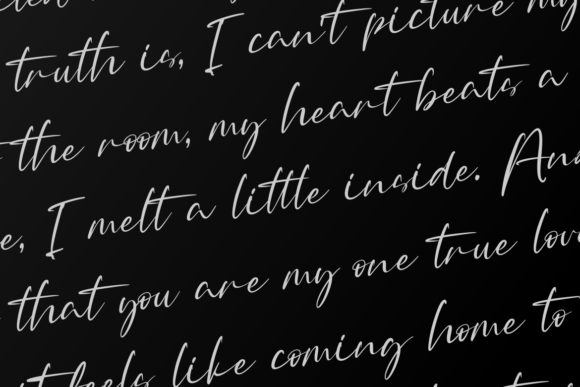 truth is, I can't picture my
the room, my heart beats a
e, I melt a little inside. And
that you are my one true lov
feels like coming home to